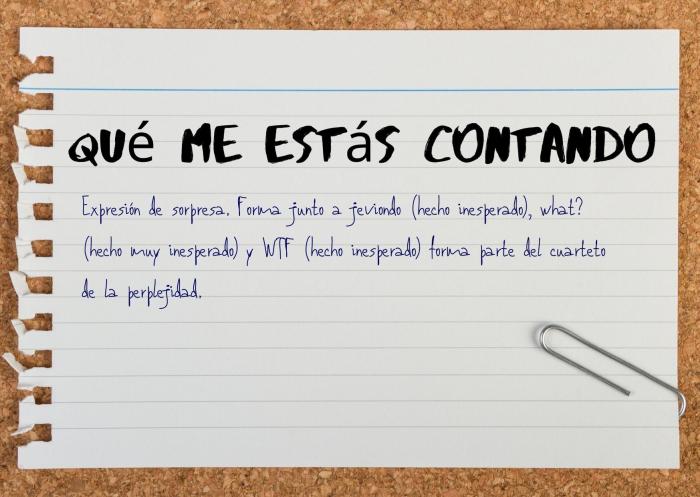 QUé ME ESTáS CONTANDO
Expresión de sorpresa. Forma junto a jeviondo (hecho inesperado), what?
(hecho muy inesperado) y WTF (hecho inesperado) forma parte del cuarteto
de la perplejidad.